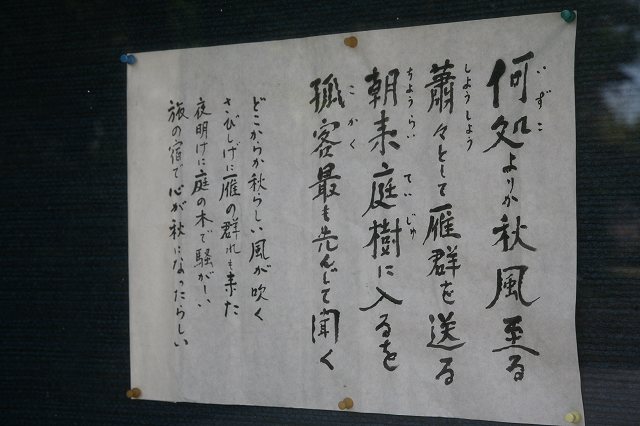 何処よりか秋風至る
いずこ
蕭々として雁群を送る
しようしよう
朝来庭樹に入るを
ちようらい ていじゆ
孤客最も先んじて聞く
こかく
どこからか秋らしい風が吹く
さびしげに雁の群れも来た
夜明けに庭の木で騒がしい
旅の宿で心が秋になったらしい